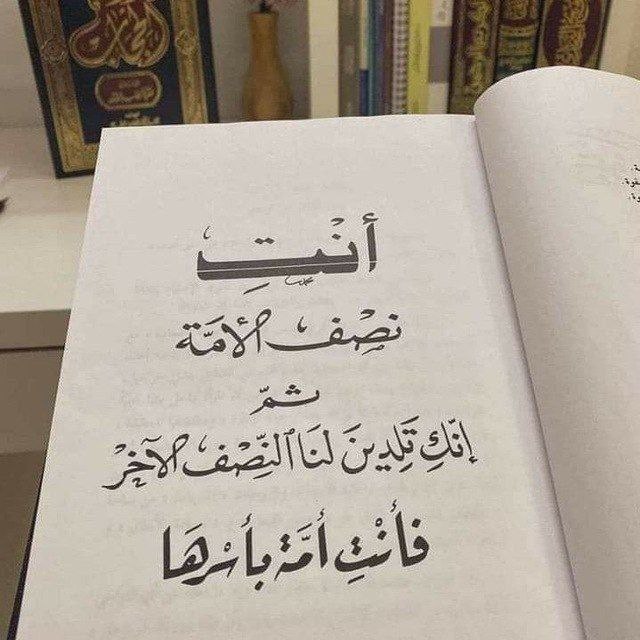 أنْتِ
نِصْف الأمَّة
ثمّ
إنّكِ تَلِدينَ لنَا النِّصْف الآخَرْ
فأنْتِ أمَّة بأسْرهَا